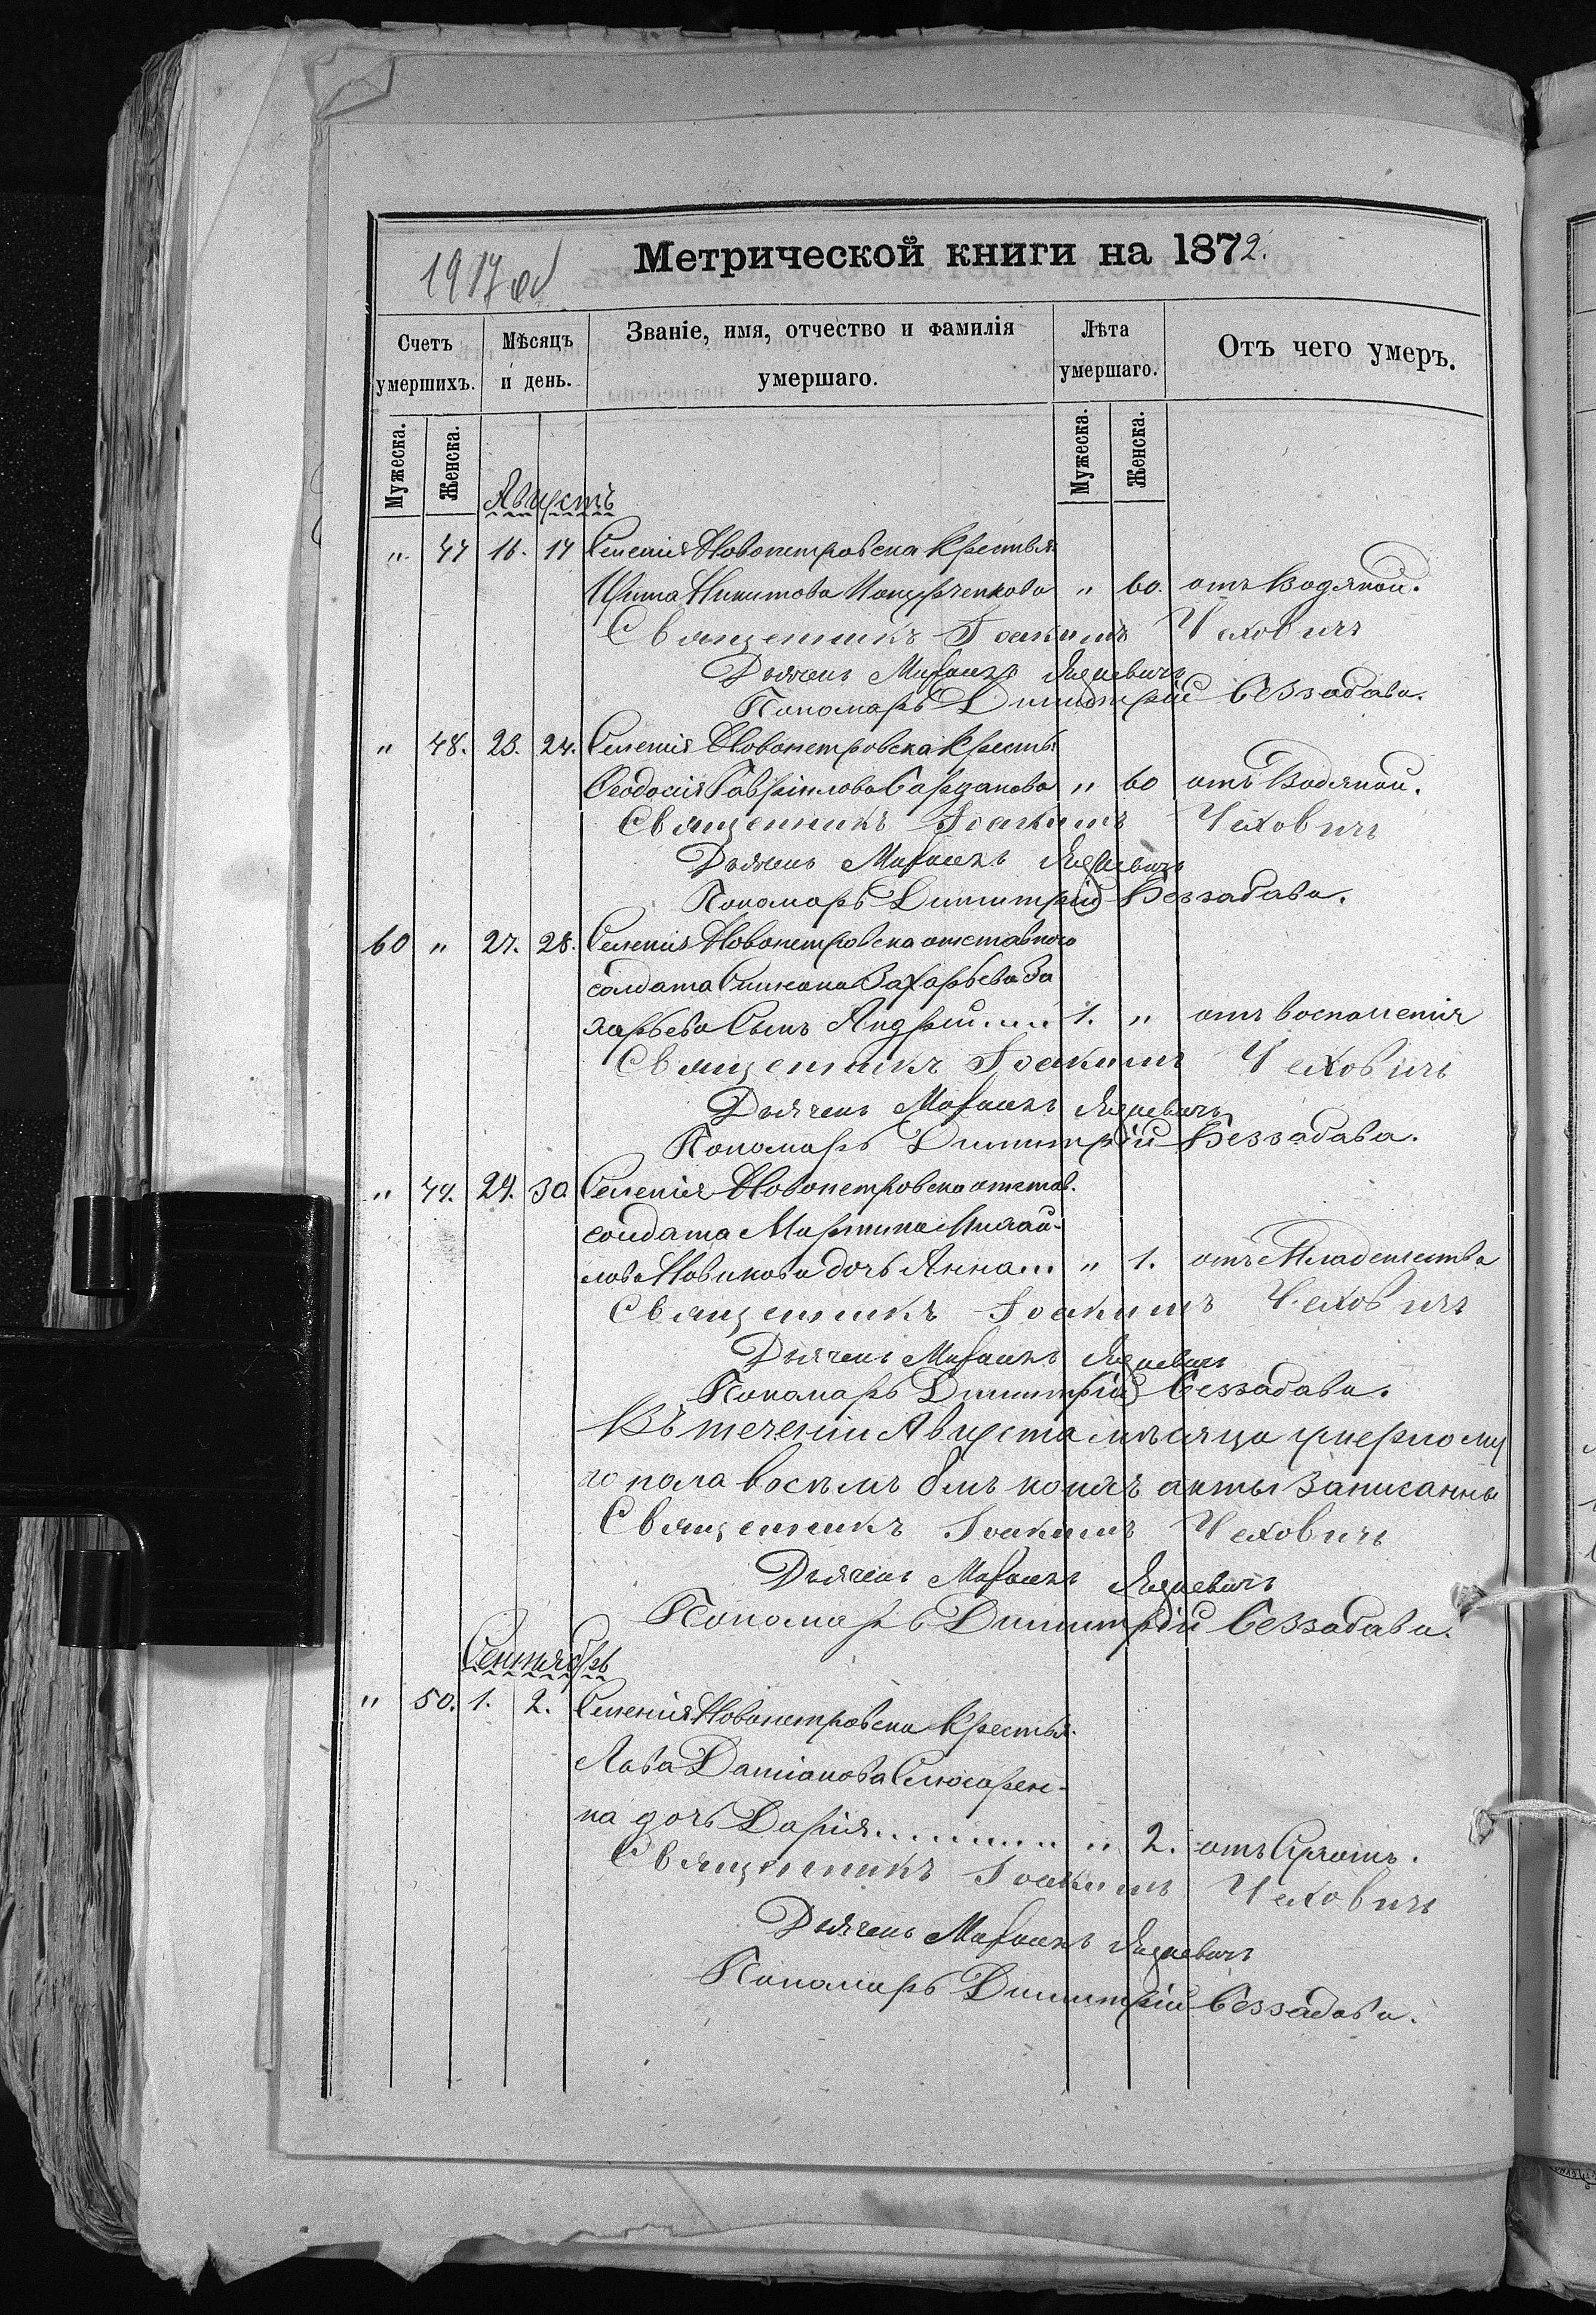 1917 об
Метрической книги на 1872.
Счетъ умершихъ.
Мѣсяцъ и день.
Званіе, имя, отчество и фамилія умершаго.
Лѣта умершаго.
Отъ чего умеръ.
Мужеска.
Женска.
Мужеска.
Женска.
Августъ
" 47 16. 17 Селенія Новопетровска Крестья.
Никитова " 60. отъ Водяной.
Священникъ Іоакимъ Чехович
Дьячекъ Михаилъ Яцкевичъ
Пономарь Димитрій Беззабава.
" 48. 23. 24. Селенія Новопетровска Кресть
Феодосія Гавріилова " 60 отъ Водяной.
Священникъ Іоакимъ Чехович
Дьячекъ Михаилъ Яцкевичъ
Пономарь Димитрій Беззабава.
60 " 27. 28. Селенія Новопетровска отставного
солдата Симеона Захарьева За
харьева Сынъ Андрей..... 1. " отъ воспаленія
Священникъ Іоакимъ Чехович
Дьячекъ Михаилъ Яцкевичъ
Пономарь Димитрій Беззабава.
" 49. 29. 30 Селенія Новопетровска отстав.
солдата Мартина Михай-
лова Новикова дочь Анна... " 1. отъ Младенчества
Священникъ Іоакимъ Чехович
Дьячекъ Михаилъ Яцкевичъ
Пономарь Димитрій Беззабава.
Въ теченіи Августа мѣсяца
го пола восемь акты записанны
Священникъ Іоакимъ Чехович
Дьячекъ Михаилъ Яцкевичъ
Пономарь Димитрій Беззабава.
Сентябрь
" 50. 1. 2. Селенія Новопетровска Крестья.
Даміанова Слюсарен-
ка дочь Дарія............ " 2. отъ
Священникъ Іоакимъ Чехович
Дьячекъ Михаилъ Яцкевичъ
Пономарь Димитрій Беззабава.